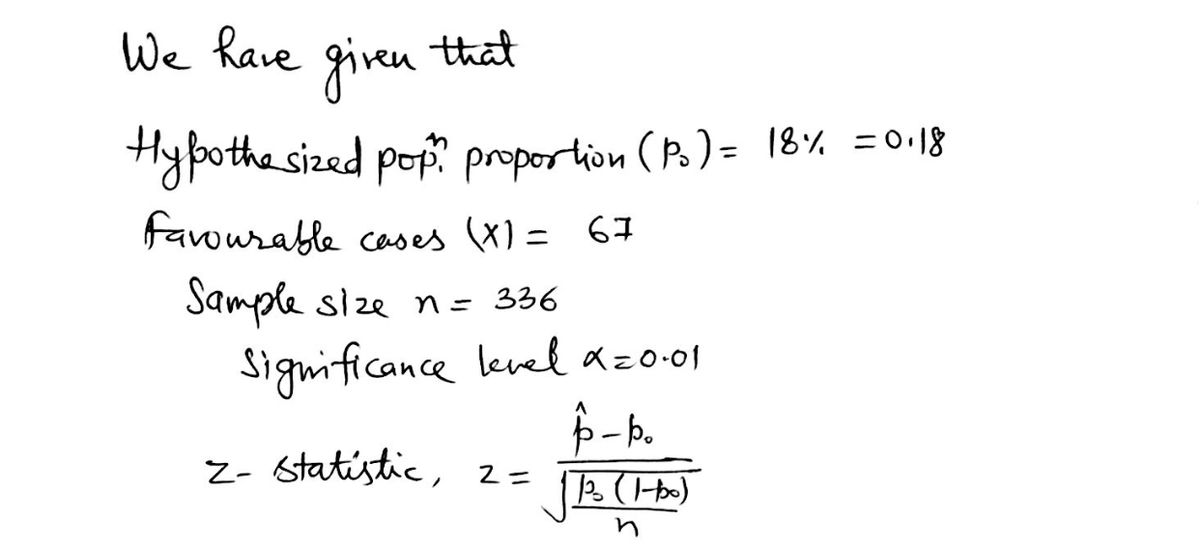 We have given that
Hypothesized popⁿ. proportion (p₀) = 18% = 0.18
favourable cases (X) = 67
Sample size n = 336
Significance level α = 0.01
z- statistic, z = (p̂ - p₀) / √(p₀ (1-p₀) / n)